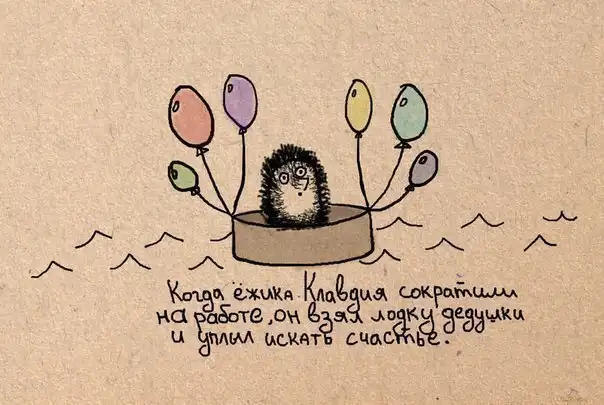 Когда ёжика Клавдия сократили
на работе, он взял лодку дедушки
и уплыл искать счастье.